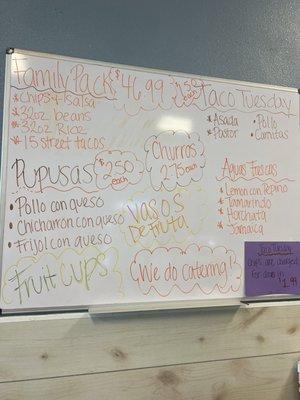 Family Pack $46.99
*Chips + Salsa
*32oz beans
*32oz Rice
*15 street tacos
Taco Tuesday
*Asada
*Pastor
•Pollo
•Carnitas
Pupusas $2.50 each
•Pollo con queso
•Chicharron con queso
•Frijol con queso
Churros
2.75 each
Aguas Frescas
*Lemon con Pepino
*Tamarindo
*Horchata
*Jamaica
Vasos
De fruta
Fruit Cups
We do catering!
Taco Tuesday
Chips are charged
for dine in
$1.99